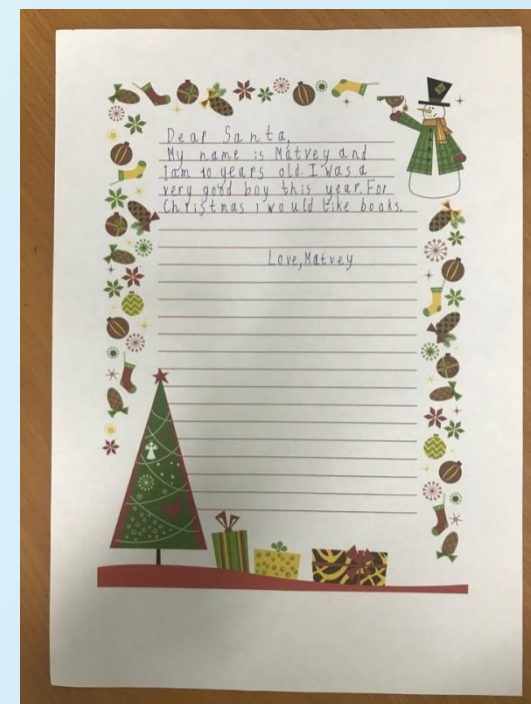 Dear Santa,
My name is Matvey and
I am 10 years old. I was a
very good boy this year. For
Christmas I would like books.
Love, Matvey